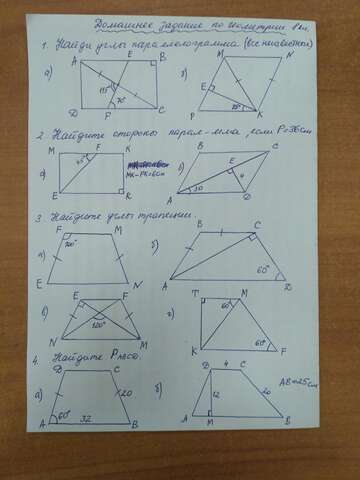 Домашнее задание по геометрии 8 кл.
1. Найди углы параллелограмма (все неизвестные)
а) A E B D F C 75°
б) M N E P K
2. Найдите стороны парал-мма, если P=36см
а) M F K E R
MK-РК=6см
б) B C E 4 A 30 D
3. Найдите углы трапеции.
а) F M 100° E N
б) B C A 60° D
в) E F 120° N M
г) T M 60° K 60° F
4. Найдите Pавсо.
а) D C 20 A 60° 32 B
б) D 4 C 12 20 A M B AB=25см